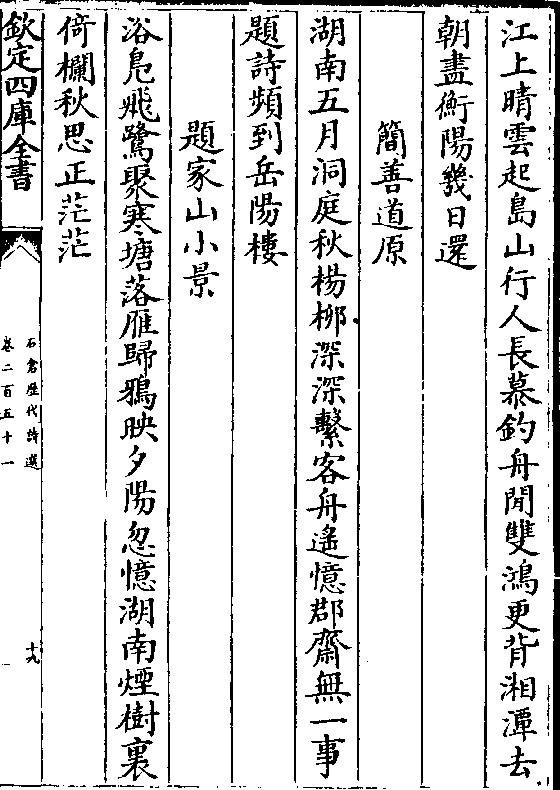 江上晴雲起島山行人長慕釣舟閒雙鴻更背湘潭去
朝盡衡陽幾日還
簡善道原
湖南五月洞庭秋楊栁深深繫客舟遙憶郡齋無一事
題詩頻到岳陽樓
題家山小景
浴鳬飛鷺聚寒塘落雁歸鴉映夕陽忽憶湖南煙樹裏
倚欄秋思正茫茫
欽定四庫全書
石倉歷代詩選
卷二百五十一
十九